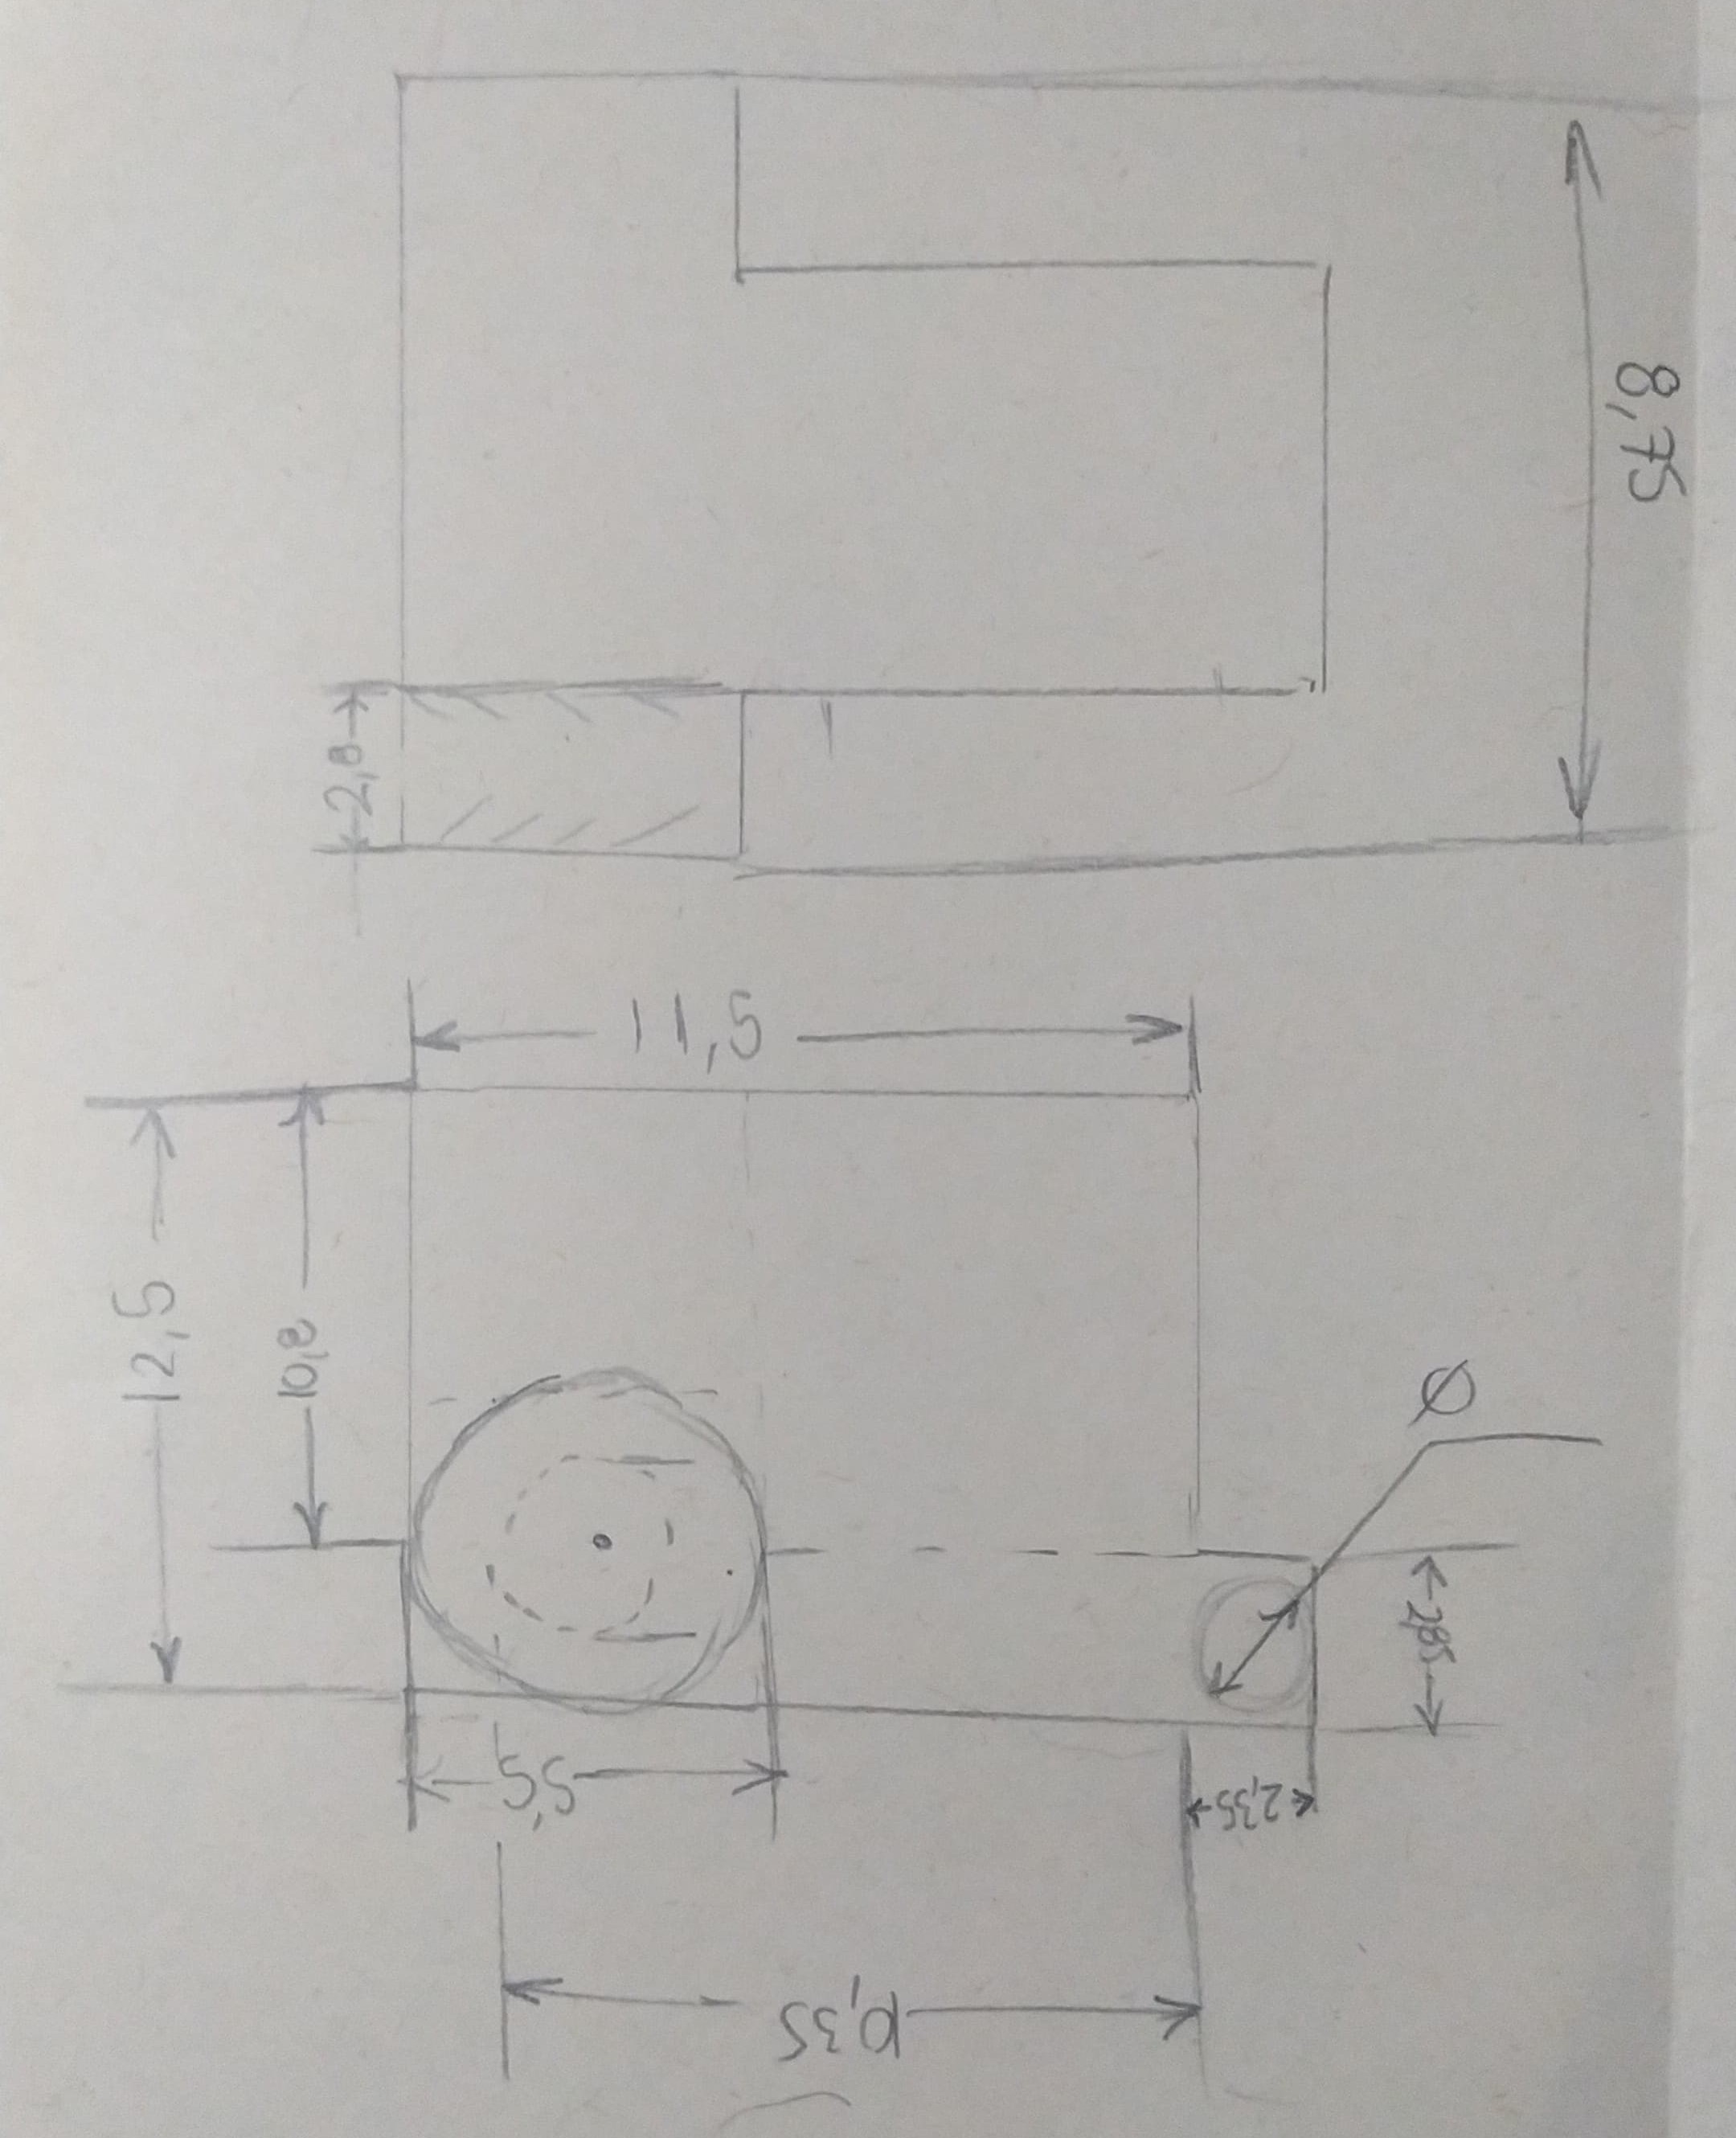 8,75
2,8
11,5
12,5
10,8
Ø
2,85
5,5
2,35
10,35